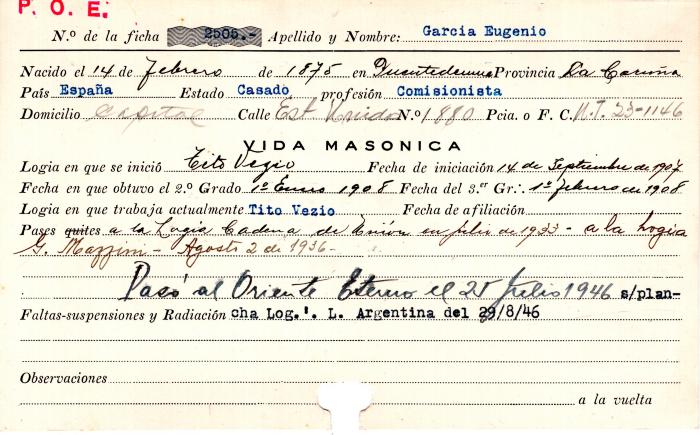 P. O. E.
N.º de la ficha 2505.- Apellido y Nombre: García Eugenio
Nacido el 14 de Febrero de 1875 en Puentedeume Provincia La Coruña
País España Estado Casado profesión Comisionista
Domicilio Capital Calle Est Unidos N.º 1880 Pcia. o F. C. U.T. 23-1146
VIDA MASONICA
Logia en que se inició Tito Vezio Fecha de iniciación 14 de Septiembre de 1907
Fecha en que obtuvo el 2.º Grado 1º Enero 1908 Fecha del 3.er Gr∴ 1º febrero de 1908
Logia en que trabaja actualmente Tito Vezio Fecha de afiliación
Pases quites a la Logia Cadena de Unión en julio de 1933 - a la Logia
G. Mazzini - Agosto 2 de 1936 -
Pasó al Oriente Eterno el 25 Julio 1946 s/plan-
Faltas-suspensiones y Radiación cha Log.'. L. Argentina del 29/8/46
Observaciones
a la vuelta